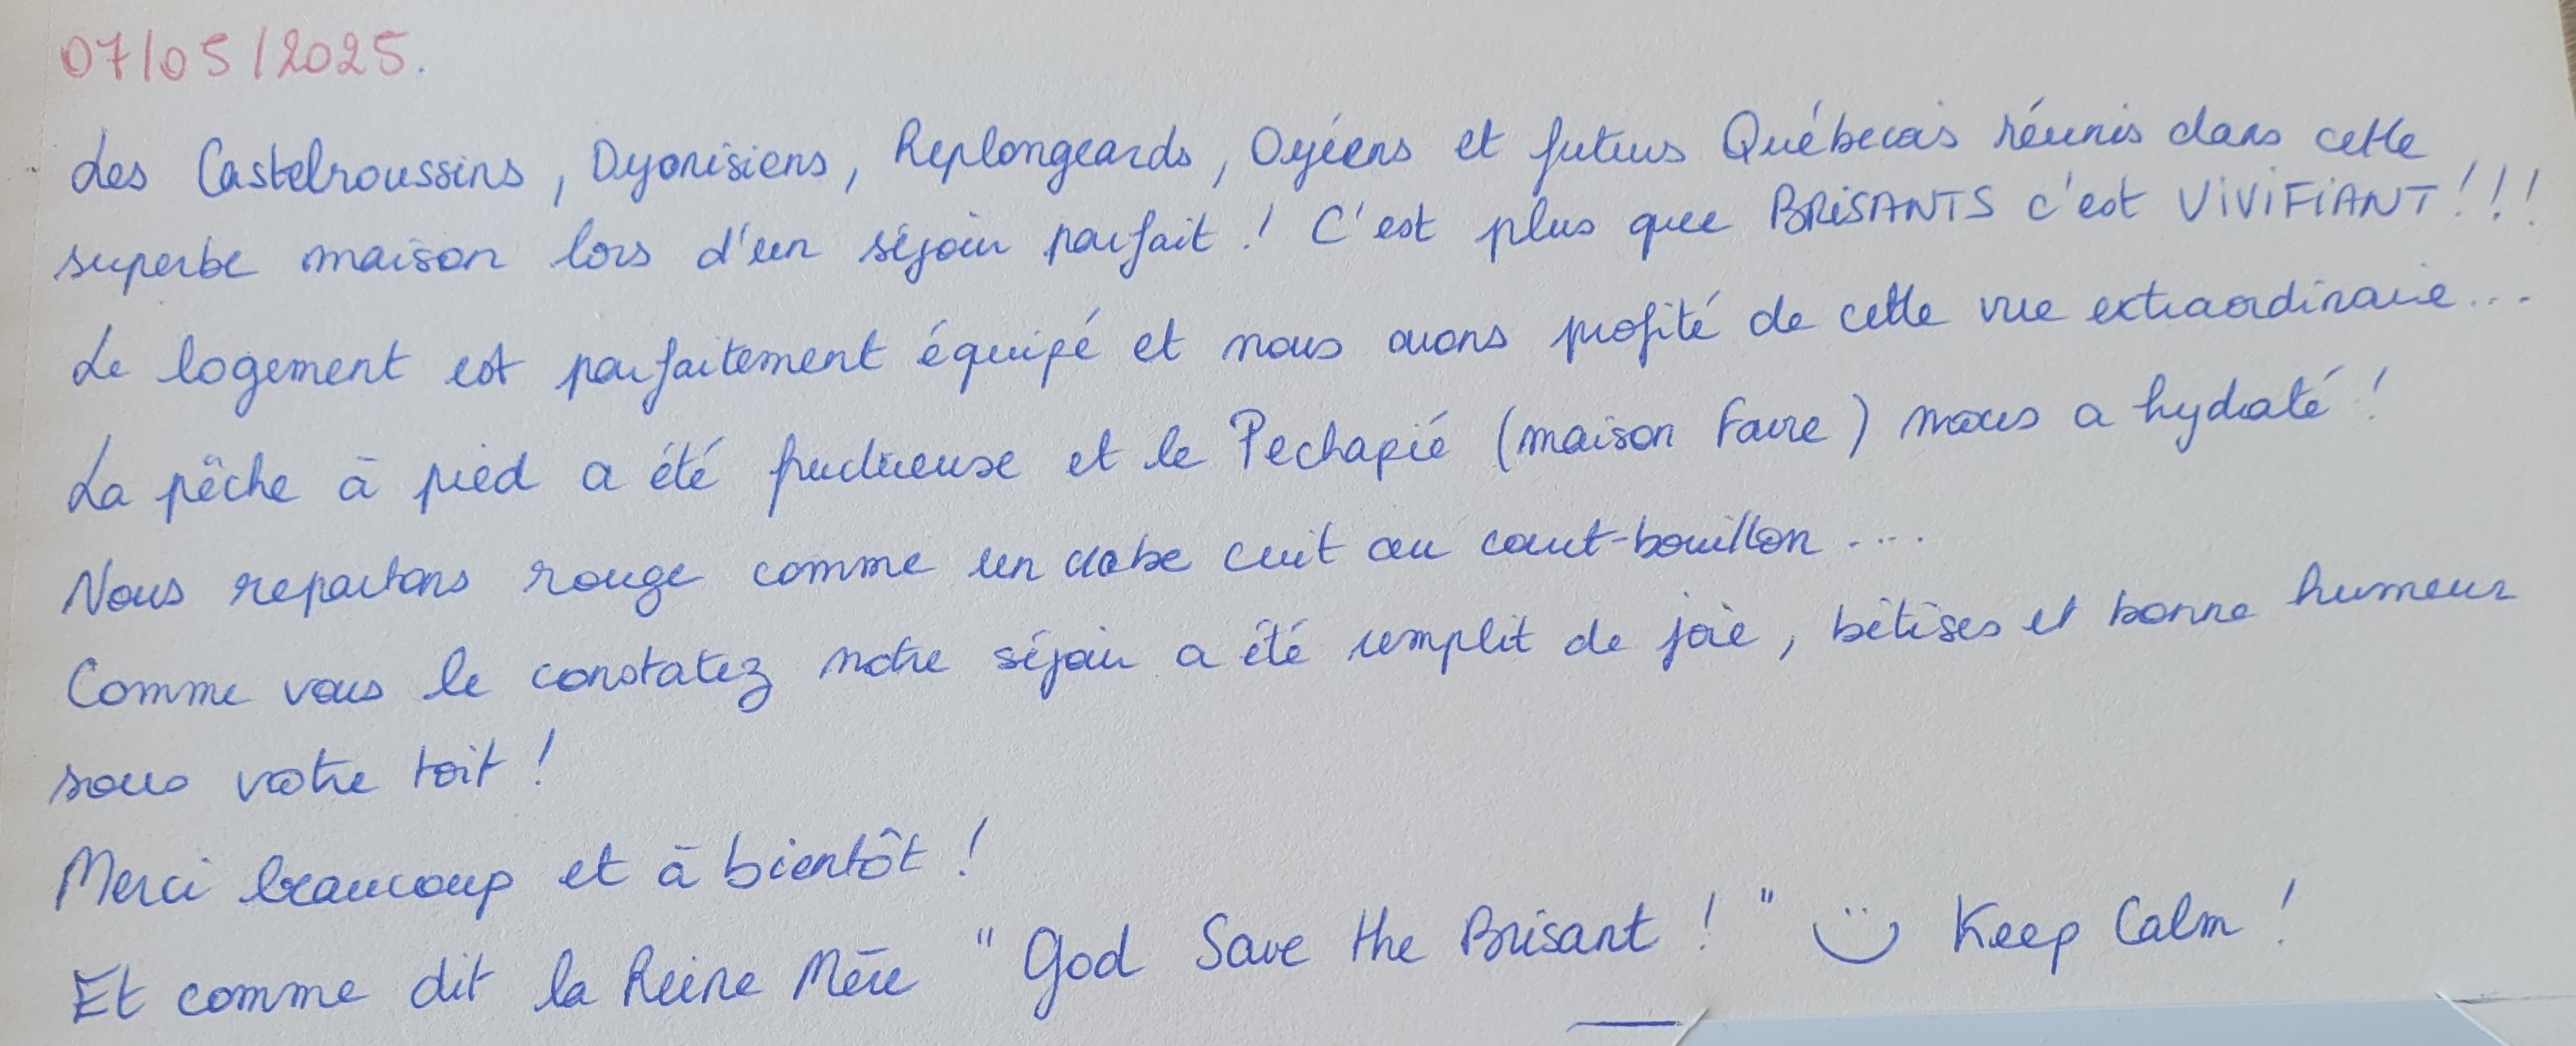 07/05/2025.
Les Castelroussins, Dyonisiens, Replongeards, Oyéens et futurs Québecois réunis dans cette
superbe maison lors d'un séjour parfait ! C'est plus que BRISANTS c'est VIVIFIANT !!!
Le logement est parfaitement équipé et nous avons profité de cette vue extraordinaire...
La pêche à pied a été fructueuse et le Pechapié (maison Favre) nous a hydraté !
Nous repartons rouge comme un crabe cuit au court-bouillon ....
Comme vous le constatez notre séjour a été remplit de joie, bêtises et bonne humeur
sous votre toit !
Merci beaucoup et à bientôt !
Et comme dit la Reine Mère "God Save the Brisant ! " Keep Calm !